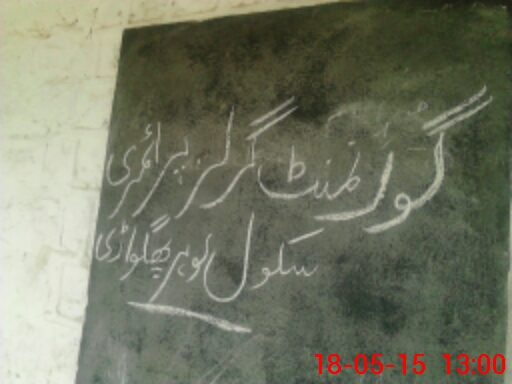 گورنمنٹ گرلز پرائمری
سکول لوہر پھگواڑی
18-05-15 13:00